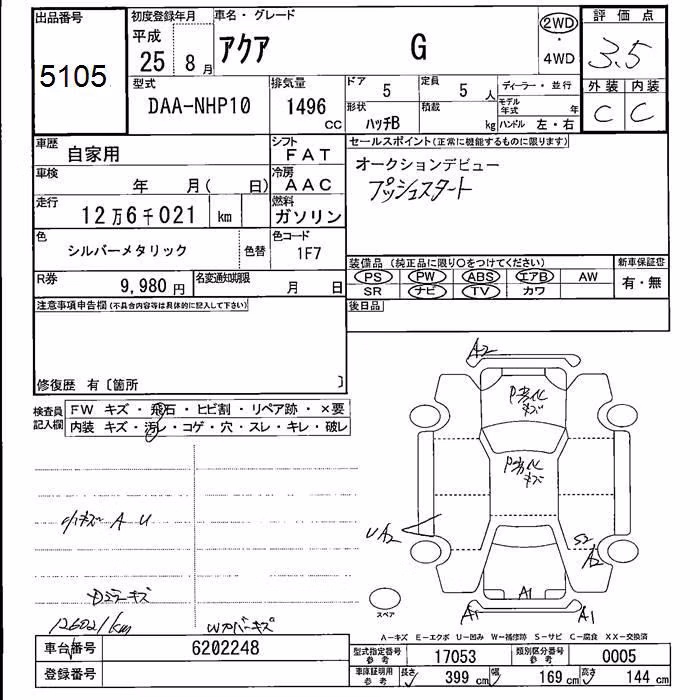 出品番号
5105
初度登録年月
平成
25 8 月
車名・グレード
アクア G
2WD
・
4WD
評価点
3.5
外装 内装
C C
型式
DAA-NHP10
排気量
1496
CC
ドア
5
定員
5 人
形状
ハッチB
積載
kg
ディーラー・並行
モデル年式 年
ハンドル 左・右
車歴
自家用
シフト
FAT
車検
年 月( 日)
冷房
AAC
走行
12万6千021 km
燃料
ガソリン
色
シルバーメタリック
色替
色コード
1F7
R券
9,980 円
名変通知期限
月 日
セールスポイント(正常に機能するものに限ります)
オークションデビュー
プッシュスタート
装備品(純正品に限り○をつけてください)
PS PW ABS エアB AW
SR ナビ TV カワ
新車保証書
有・無
後日品
注意事項申告欄(不具合内容等は具体的に記入して下さい)
修復歴 有〔箇所 〕
検査員
記入欄
FW キズ・飛石・ヒビ割・リペア跡・×要
内装 キズ・汚レ・コゲ・穴・スレ・キレ・破レ
小キズ A U
Dミラーキズ
126021km
Wカバーキズ
A2
UA2
S2
A2
A1
A1
A1
スペア
A-キズ E-エクボ U-凹み W-補修跡 S-サビ C-腐食 XX-交換済
車台番号
6202248
登録番号
型式指定番号
参考
17053
類別区分番号
参考
0005
車庫証明用
参考
長さ 399 cm
幅 169 cm
高さ 144 cm